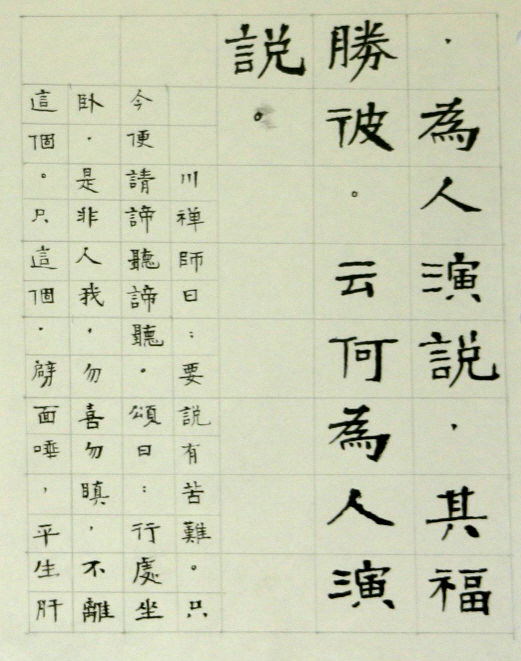 ，為人演説，其福
勝彼。云何為人演
説。
川禅師曰：要説有苦難。只
今便請諦聽諦聽。頌曰：行處坐
臥，是非人我，勿喜勿瞋，不離
這個。只這個，劈面唾，平生肝